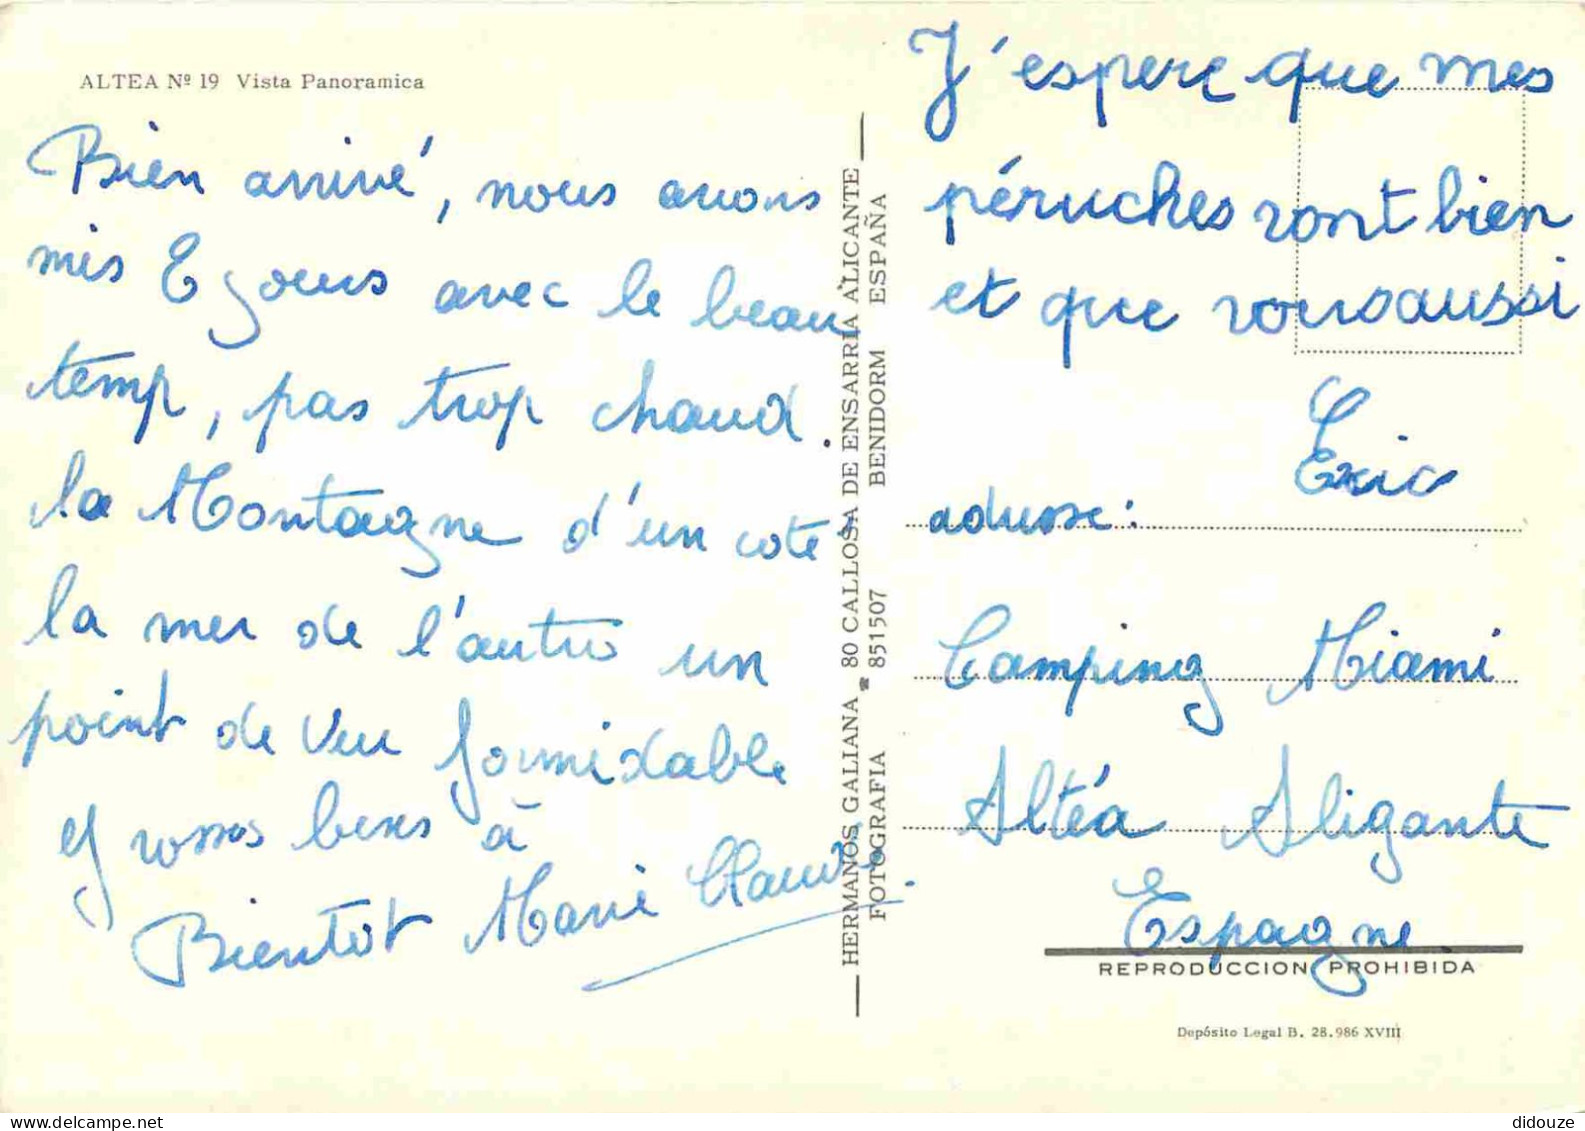 ALTEA Nº 19 Vista Panoramica
Bien arrivé, nous avons
mis 2 jours avec le beau
temp, pas trop chaud.
la Montagne d'un coté
la mer de l'autre un
point de vu formidable
grosses bises à
Bientot Marie Claude
HERMANOS GALIANA - 80 CALLOSA DE ENSARRIA ALICANTE
FOTOGRAFIA ☎ 851507 BENIDORM ESPAÑA
J'espere que mes
péruches vont bien
et que vous aussi
Eric
adresse:
Camping Miami
Altéa Aligante
Espagne
REPRODUCCION PROHIBIDA
Depósito Legal B. 28.986 XVIII
didouze